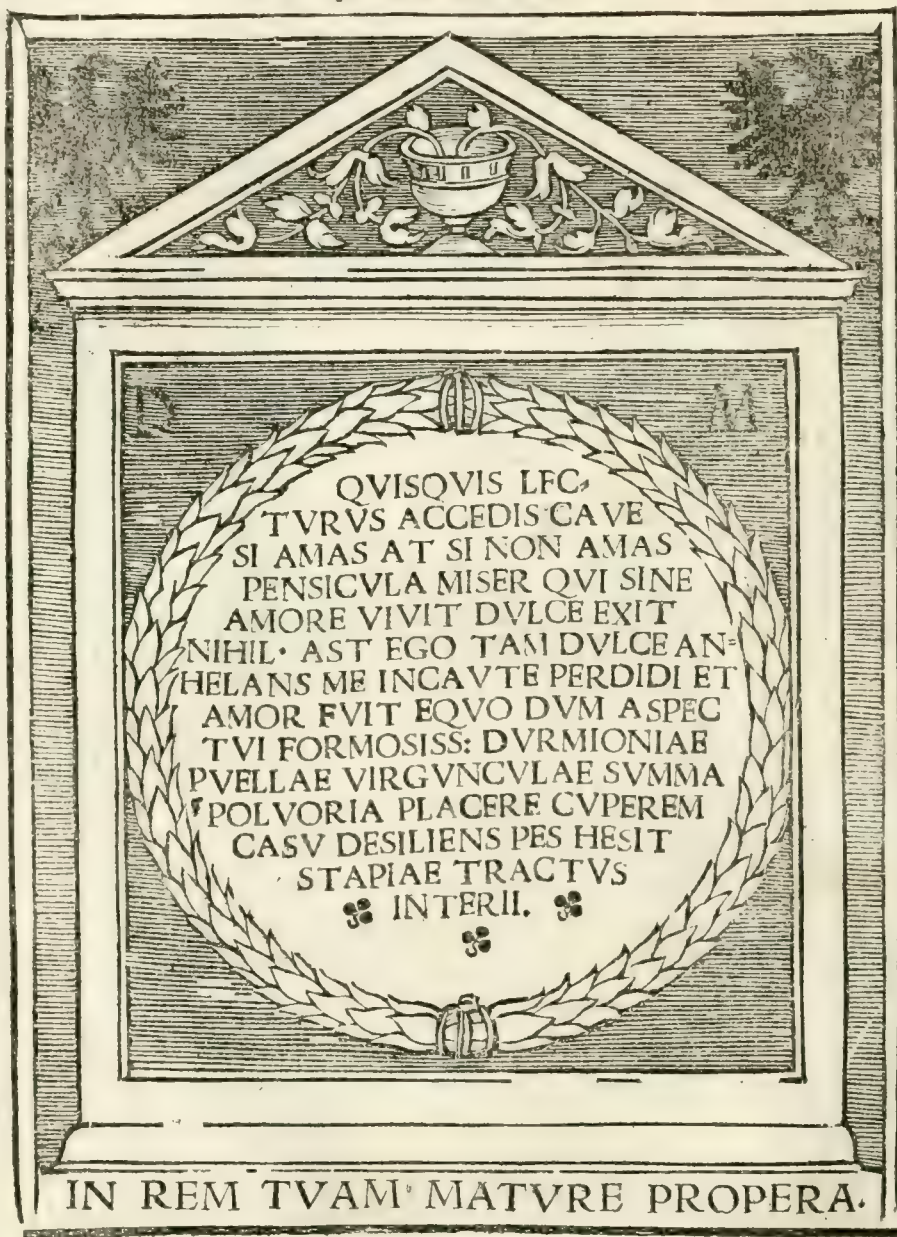 D M
QVISQVIS LEC⸗
TVRVS ACCEDIS CAVE
SI AMAS AT SI NON AMAS
PENSICVLA MISER QVI SINE
AMORE VIVIT DVLCE EXIT
NIHIL· AST EGO TAM DVLCE AN=
HELANS ME INCAVTE PERDIDI ET
AMOR FVIT EQVO DVM ASPEC
TVI FORMOSISS: DVRMIONIAE
PVELLAE VIRGVNCVLAE SVMMA
POLVORIA PLACERE CVPEREM
CASV DESILIENS PES HESIT
STAPIAE TRACTVS
INTERII.
IN REM TVAM· MATVRE PROPERA·